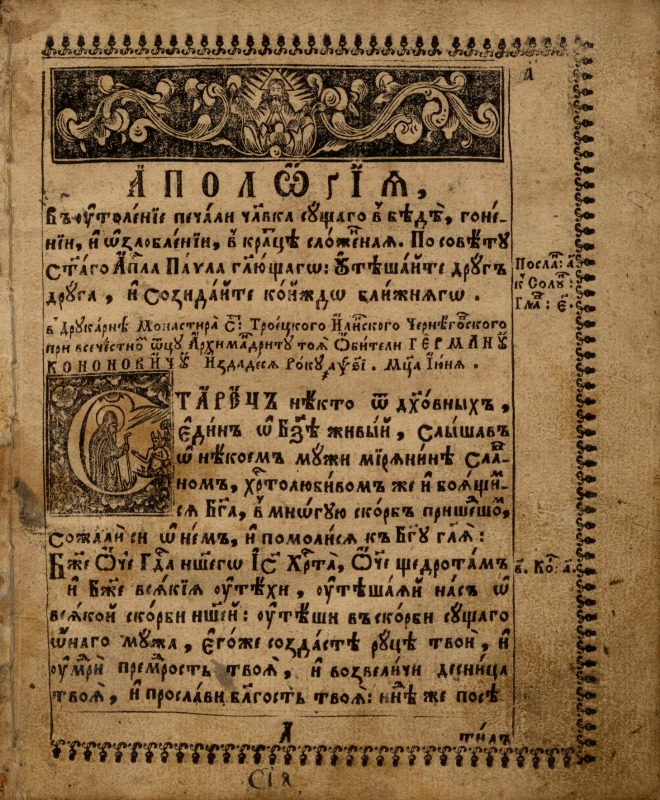 А҆ПОЛѠ҆ГІ́Ѧ,
Въ ᲂу҆толе́нїе печа́ли чл҃вка сꙋ́щаго в҆ бѣдѣ̀, гоне́-
нїи, и҆ ѡ҆злобле́нїи, в҆ кра́тцѣ сложе́наѧ. По совѣ́тꙋ
Ст҃а́го А҆п҃ла Па́ѵла гл҃ющагѡ: Оу҆тѣша́йте дрꙋ́гъ
дрꙋ́га, и҆ Созида́йте ко́йждѡ бли́жнѧгѡ.
Посла: а҃.
к Солꙋ:
Гла: є҃.
в҆ Дрꙋка́рнѣ Монастирѧ̀ С: Трое́цкого И҆ли́нского Черне́гѡ́вского
при всечестно ѿцꙋ А҆рхима́дритꙋ тоѧ̀ Ѻ҆би́тели ГЕРМА́НꙊ
КОНОНОВИЧꙊ И҆здаде́сѧ Ро́кꙋ ҂аѱ҃ѕі. Мц҃а І҆ю́нѧ.
СТА́РЕЦЪ нѣ́кто ѿ дх҃о́вныхъ,
є҆ди́нъ ѡ҆ Бз҃ѣ живы́й, слы́шавъ
ѡ҆ нѣ́коемъ мꙋ́жи мїрѧ́нинѣ сла́в-
номъ, хрⷭ҇толюби́вомъ же и҆ боѧ́щи-
сѧ Бг҃а, в҆ мнѡ́гꙋю ско́рбь прише́дшо,
сожали́ си ѡ҆ не́мъ, и҆ помоли́сѧ къ Бг҃ꙋ гл҃ѧ:
Бж҃е Ѻ҆́ч҃е Гдⷭ҇а на́шегѡ І҆с҃ Хрⷭ҇та̀, Ѻ҆́ч҃е щедро́тамъ
в҃. Ко: а҃.
и҆ Бж҃е всѧ́кїѧ ᲂу҆тѣ́хи, ᲂу҆тѣша́ѧй на́съ ѡ҆
всѧ́кой ско́рби на́шей: ᲂу҆тѣ́ши въ ско́рби сꙋ́щаго
ѻ҆́наго мꙋ́жа, є҆го́же созда́стѣ рꙋ́цѣ твоѝ, и҆
ᲂу҆мⷣрѝ премⷣрость твоѧ̀, и҆ возвели́чи десни́ца
твоѧ̀, и҆ просла́ви бл҃гость твоѧ̀: нн҃ѣ же посѣ-
А
ти́лъ
Сіѧ